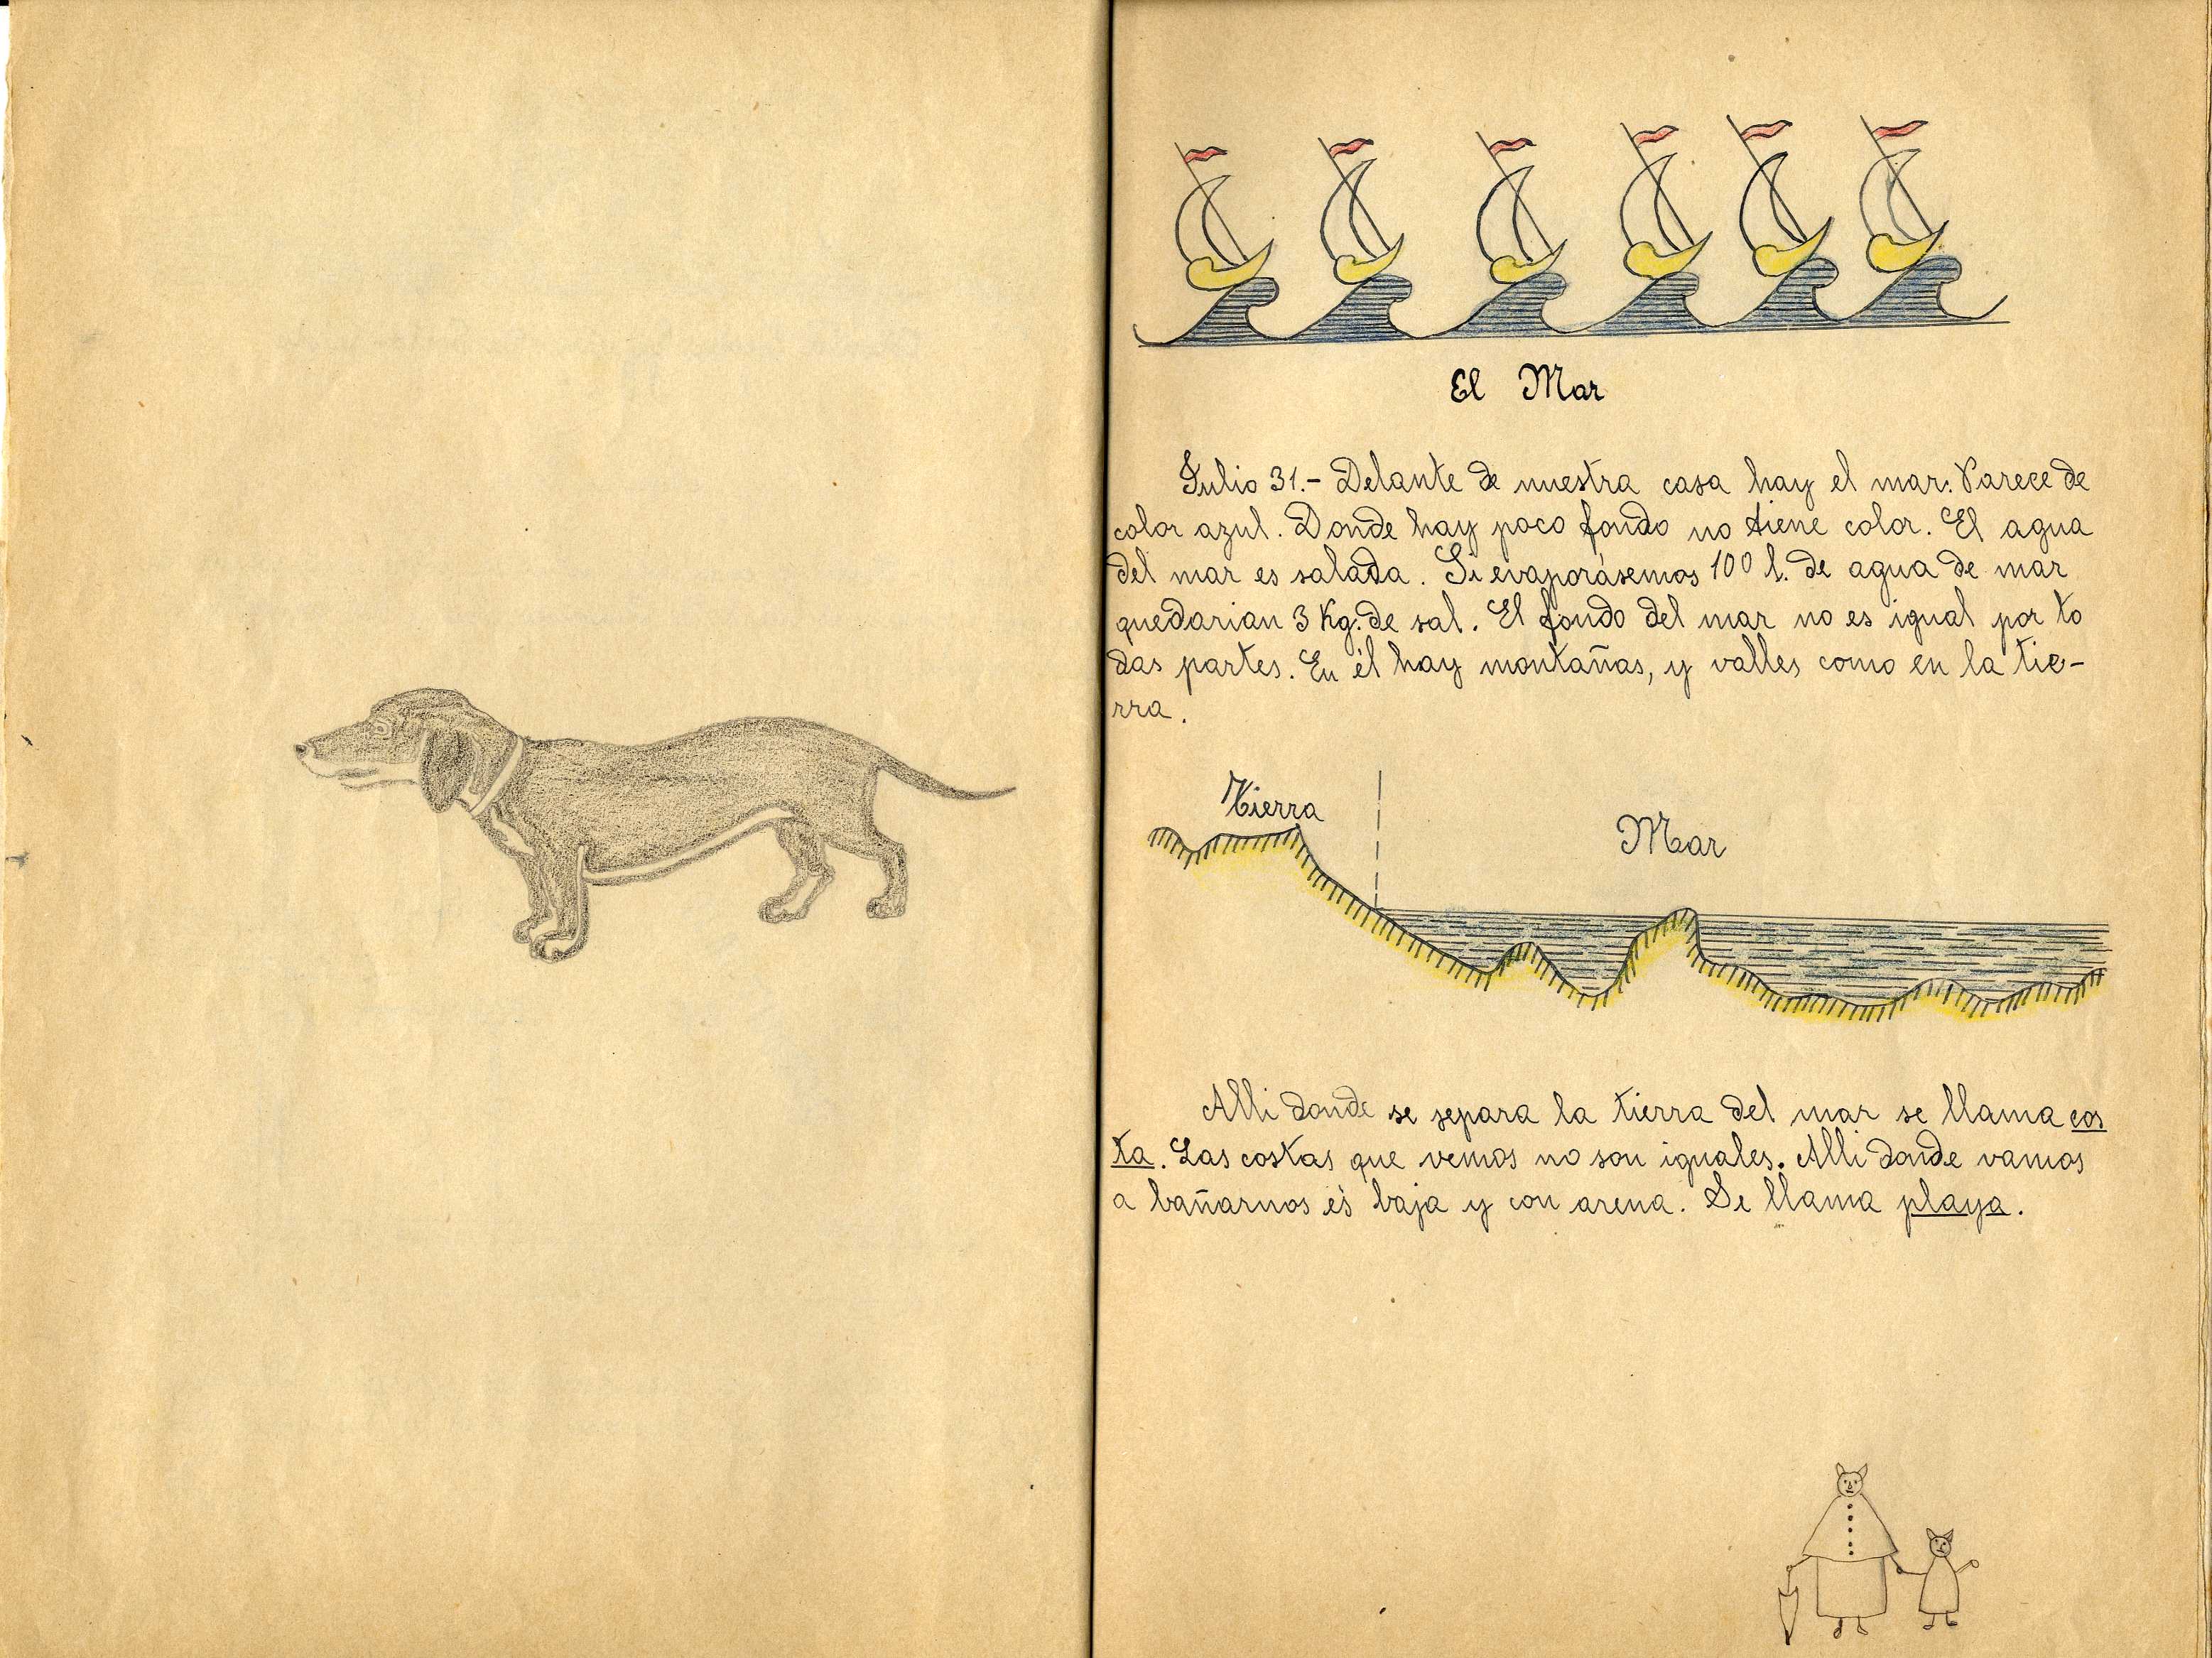 El Mar
Julio 31.- Delante de nuestra casa hay el mar. Parece de
color azul. Donde hay poco fondo no tiene color. El agua
del mar es salada. Si evaporásemos 100 l. de agua de mar
quedarian 3 Kg. de sal. El fondo del mar no es igual por to
das partes. En él hay montañas, y valles como en la tie-
rra.
Tierra
Mar
Alli donde se separa la tierra del mar se llama cos
ta. Las costas que vemos no son iguales. Alli donde vamos
a bañarnos es baja y con arena. Se llama playa.